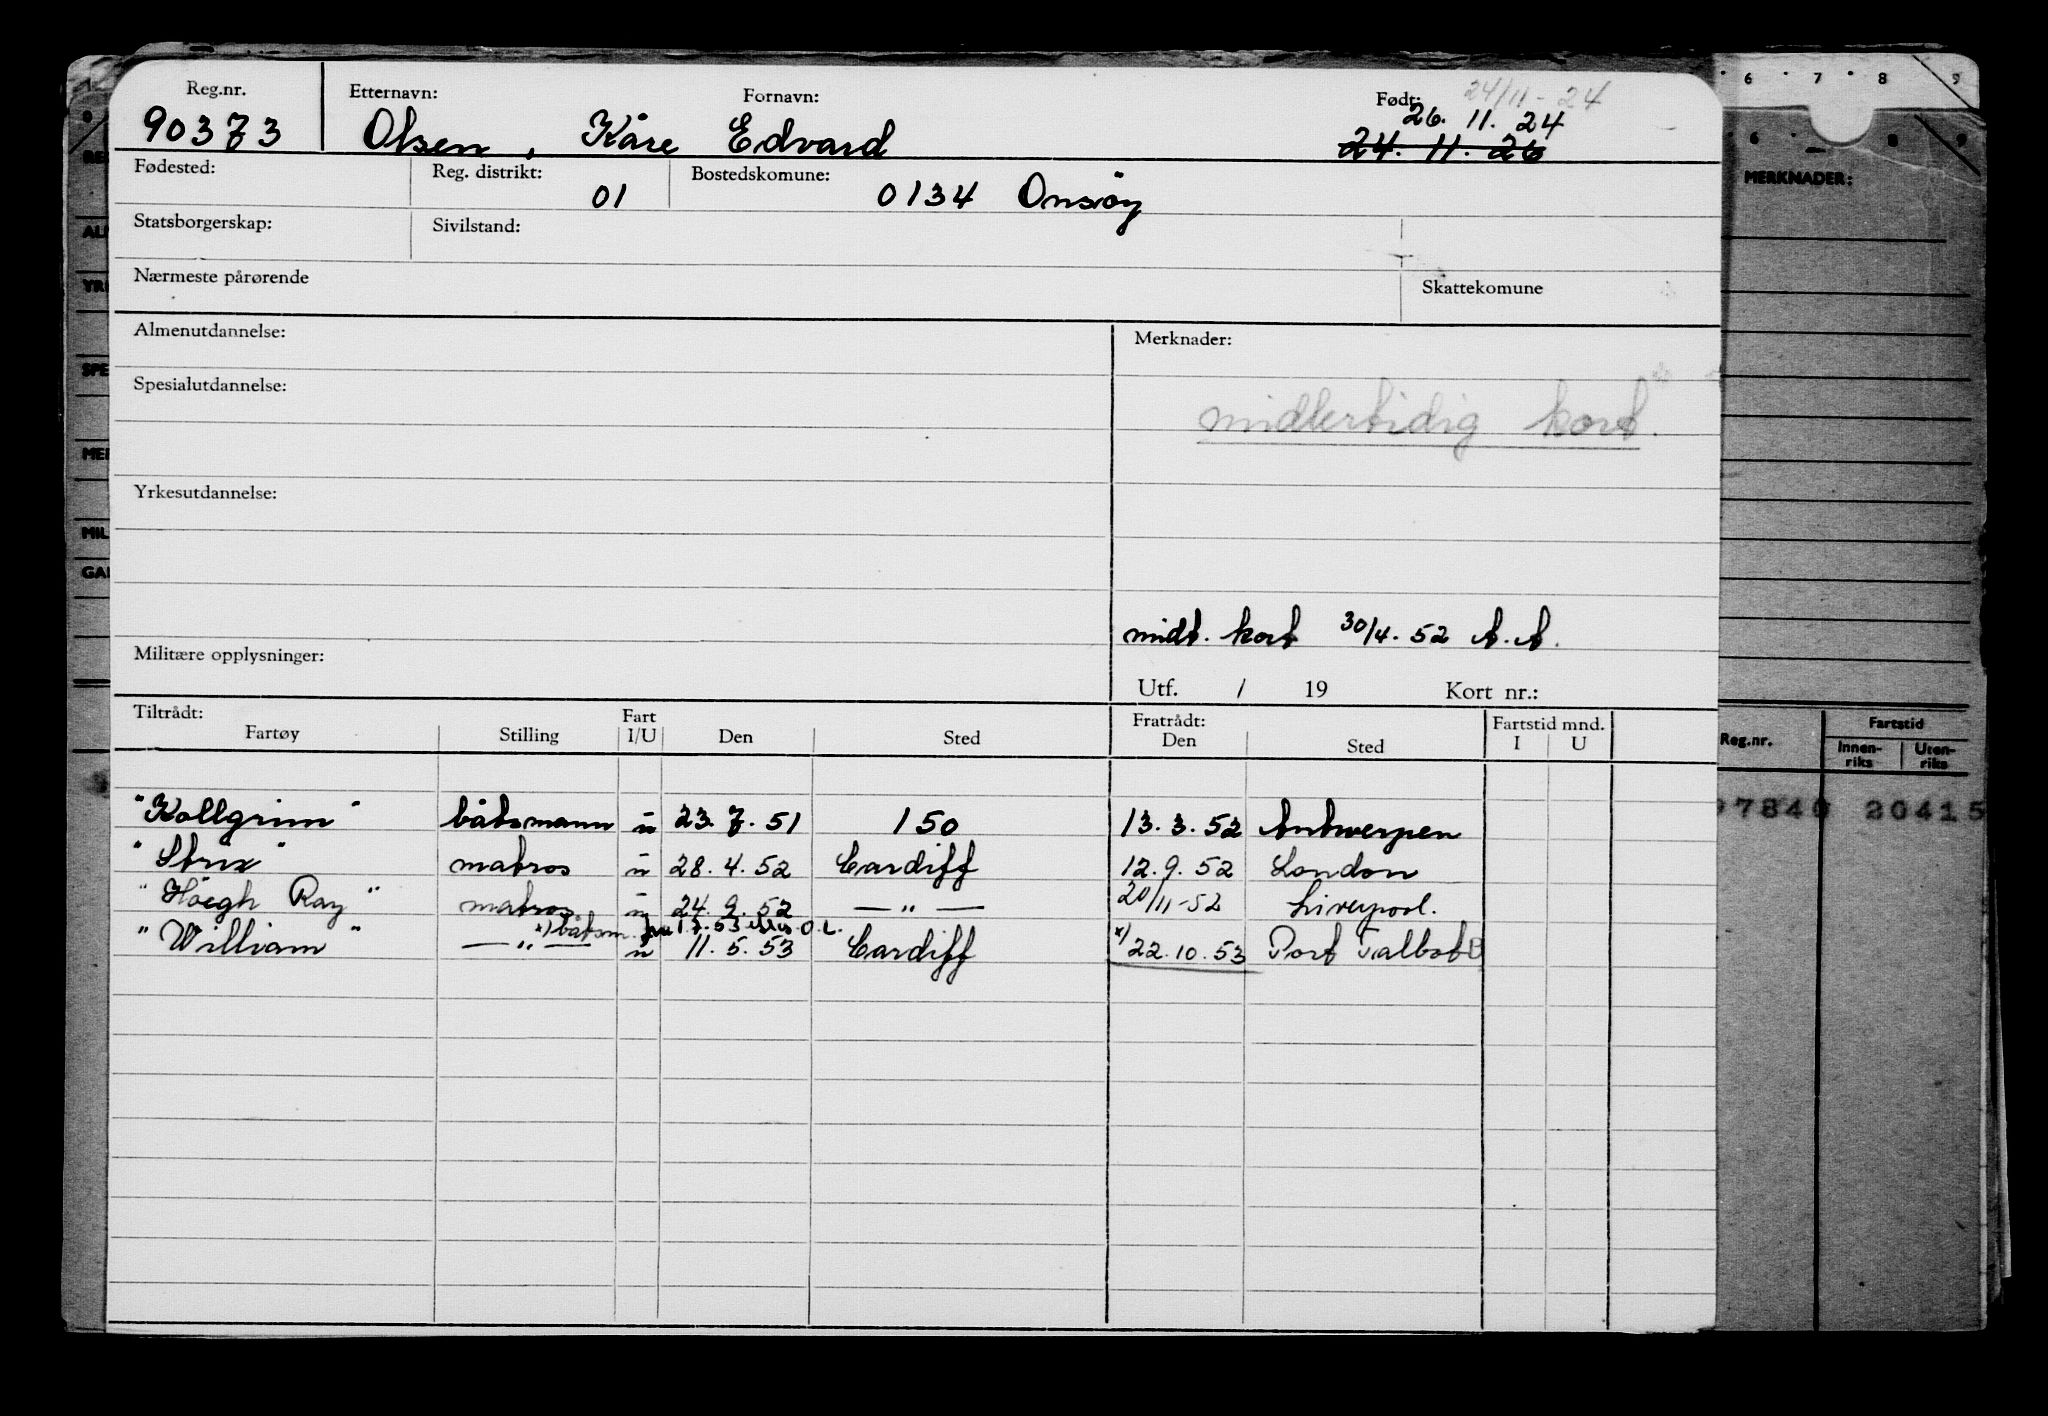 Reg.nr. Etternavn: Fornavn: Født: 24/11-24
26. 11. 24
90373 Olsen, Kåre Edvard 24. 11. 26
Fødested: Reg. distrikt: 01 Bostedskomune: 0134 Onsøy
Statsborgerskap: Sivilstand:
Nærmeste pårørende Skattekomune
Almenutdannelse: Merknader:
Spesialutdannelse:
midlertidig kort.
Yrkesutdannelse:
midt. kort 30/4. 52 A.A.
Militære opplysninger:
Utf. / 19 Kort nr.:
Tiltrådt: Fart Fratrådt: Fartstid mnd.
Fartøy Stilling I/U Den Sted Den Sted I U
"Kollgrim" båtsmann u 23. 7. 51 150 13. 3. 52 Antwerpen
"Strix" matros u 28. 4. 52 Cardiff 12. 9. 52 London
"Höegh Ray" matros u 24. 9. 52 — " — 20/11-52 Liverpool.
x) båtsm. fra 1.7.53
"William" — " — u 11. 5. 53 Cardiff x) 22. 10. 53 Port Talbot
6 7 8 9
6 8 9
MERKNADER:
Reg.nr. Fartstid
Innen-riks Uten-riks
20415